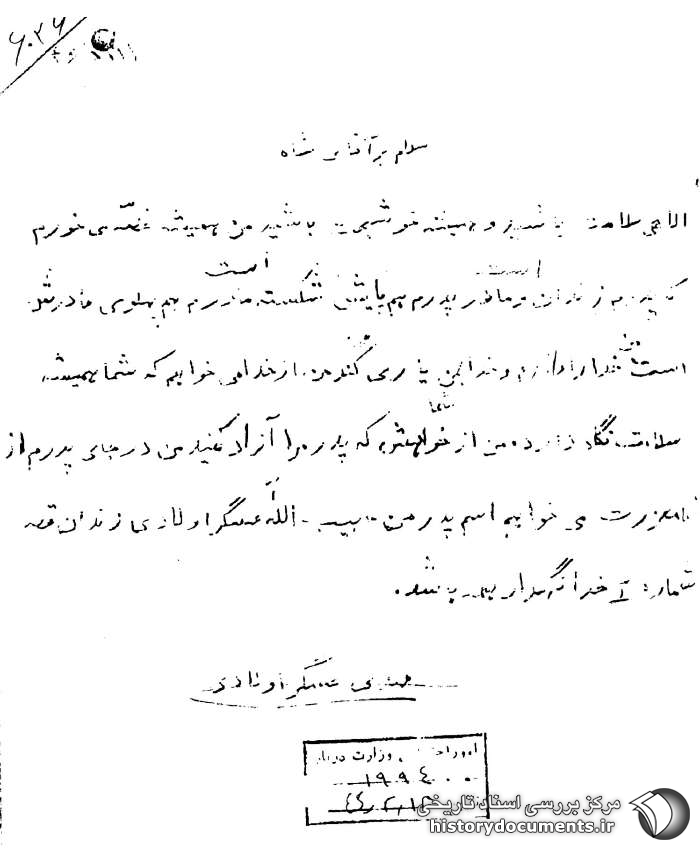 ۶۰۲۶
سلام بر آقای شاه
الاهی سلامت باشید و همیشه خوشبخت باشید من همیشه غصه می خورم
است است
که پدرم زندان و مادر پدرم هم پایش شکسته مادرم هم پهلوی مادرش
است من خدا را دارم و خدا بمن یاری کند من از خدا می خواهم که شما همیشه
شما
سلامت نگاه دارد من از خواهش که پدر مرا آزاد کنید من در جای پدرم از
معذرت می خواهم اسم پدر من حبیب الله عسگراولادی زندان قصر
شماره ۴ خدا نگهدار باشد.
مهدی عسگراولادی
امور اجتماعی وزارت دربار
۱۹۹۴۰۰
مرکز بررسی اسناد تاریخی
historydocuments.ir